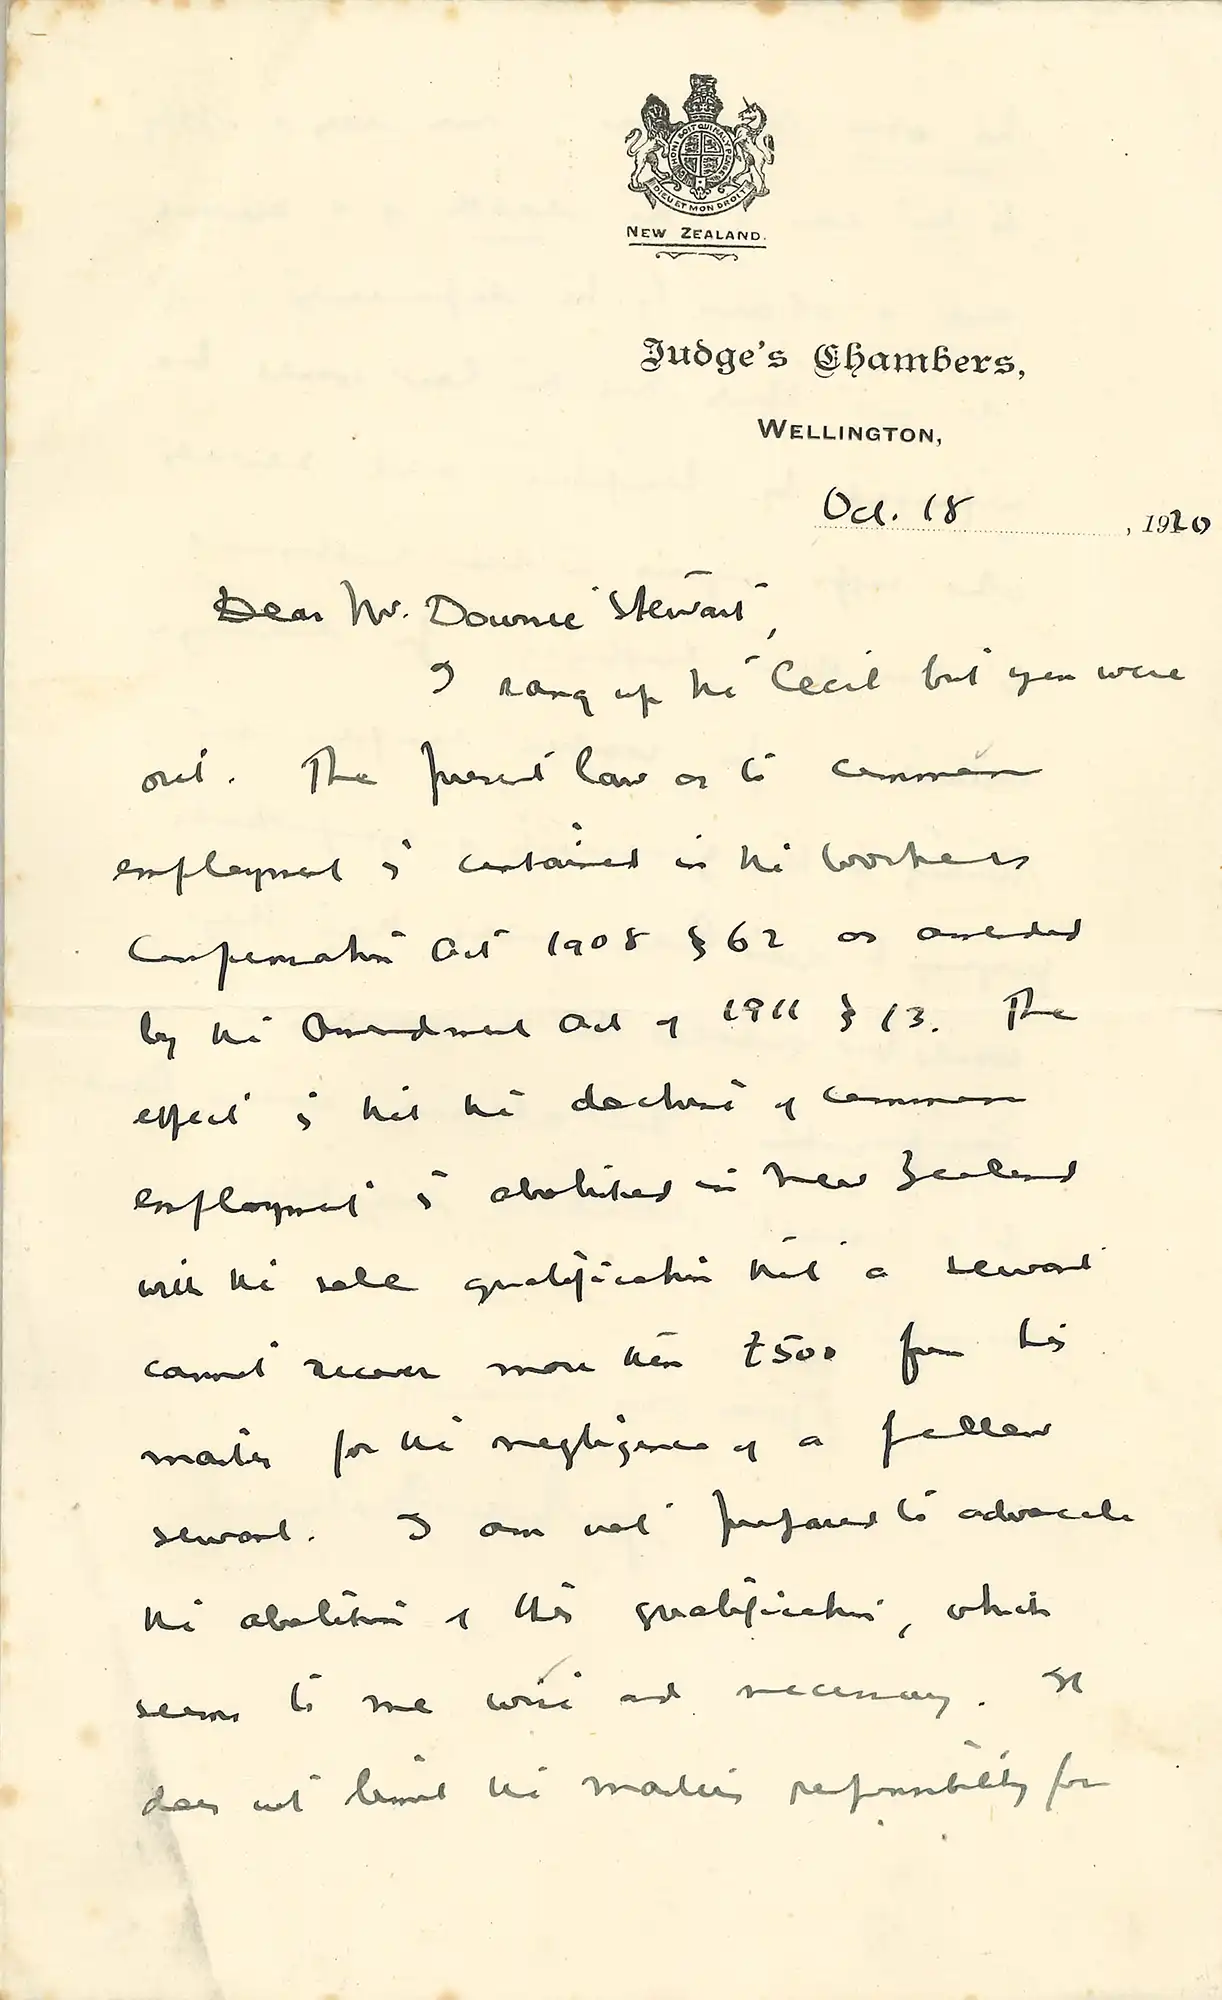 HONI SOIT QUI MAL Y PENSE
DIEU ET MON DROIT
NEW ZEALAND.
Judge's Chambers,
WELLINGTON,
Oct. 18, 1920
Dear Mr. Downie Stewart,
I rang up the Cecil but you were
out. The present law as to common
employment is contained in the Workers
Compensation Act 1908 § 62 as amended
by the Amendment Act of 1911 § 13. The
effect is that the doctrine of common
employment is abolished in New Zealand
with the sole qualification that a servant
cannot recover more than £500 from his
master for the negligence of a fellow
servant. I am not prepared to advocate
the abolition of this qualification, which
seems to me wise and necessary. It
does not limit the master's responsibility for